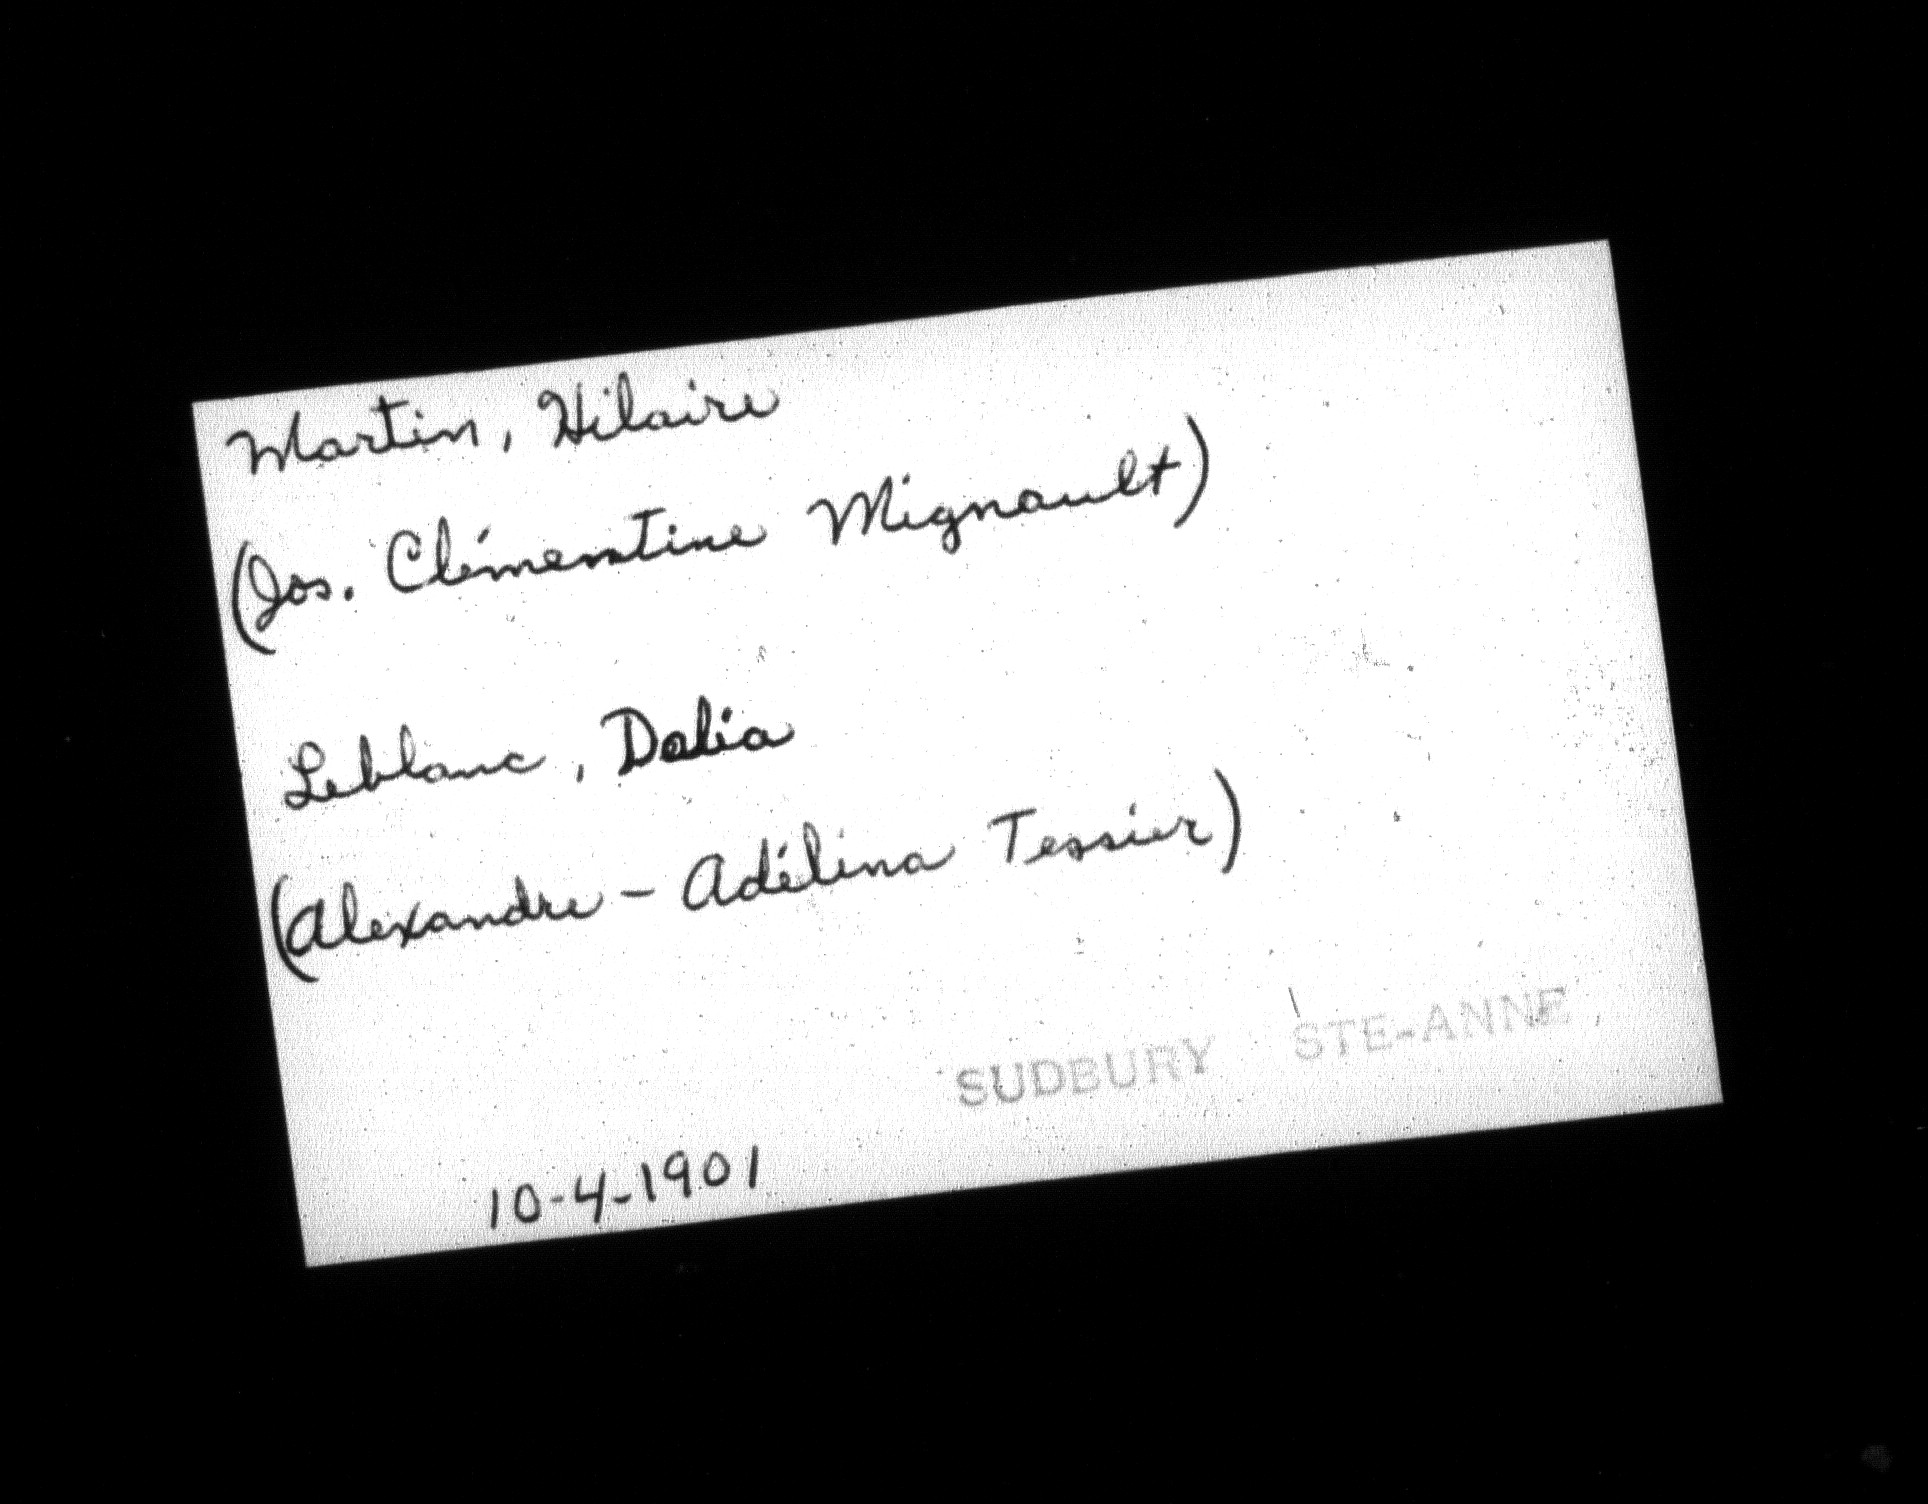 Martin, Hilaire
(Jos. Clémentine Mignault)
Leblanc, Dalia
(Alexandre - Adélina Tessier)
SUDBURY STE-ANNE
10-4-1901